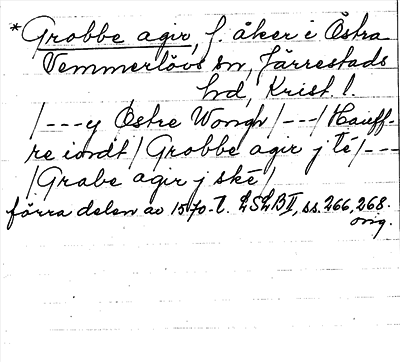 *Grobbe agir, f. åker i Östra
Vemmerlövs sn, Järrestads
hd, Krist. l.
/---y Östre Wongh/---/Hauff-
re iordt/Grobbe agir j té/---
/Grabe agir j ské/
förra delen av 1570-t. LSLB II, ss. 266, 268.
orig.